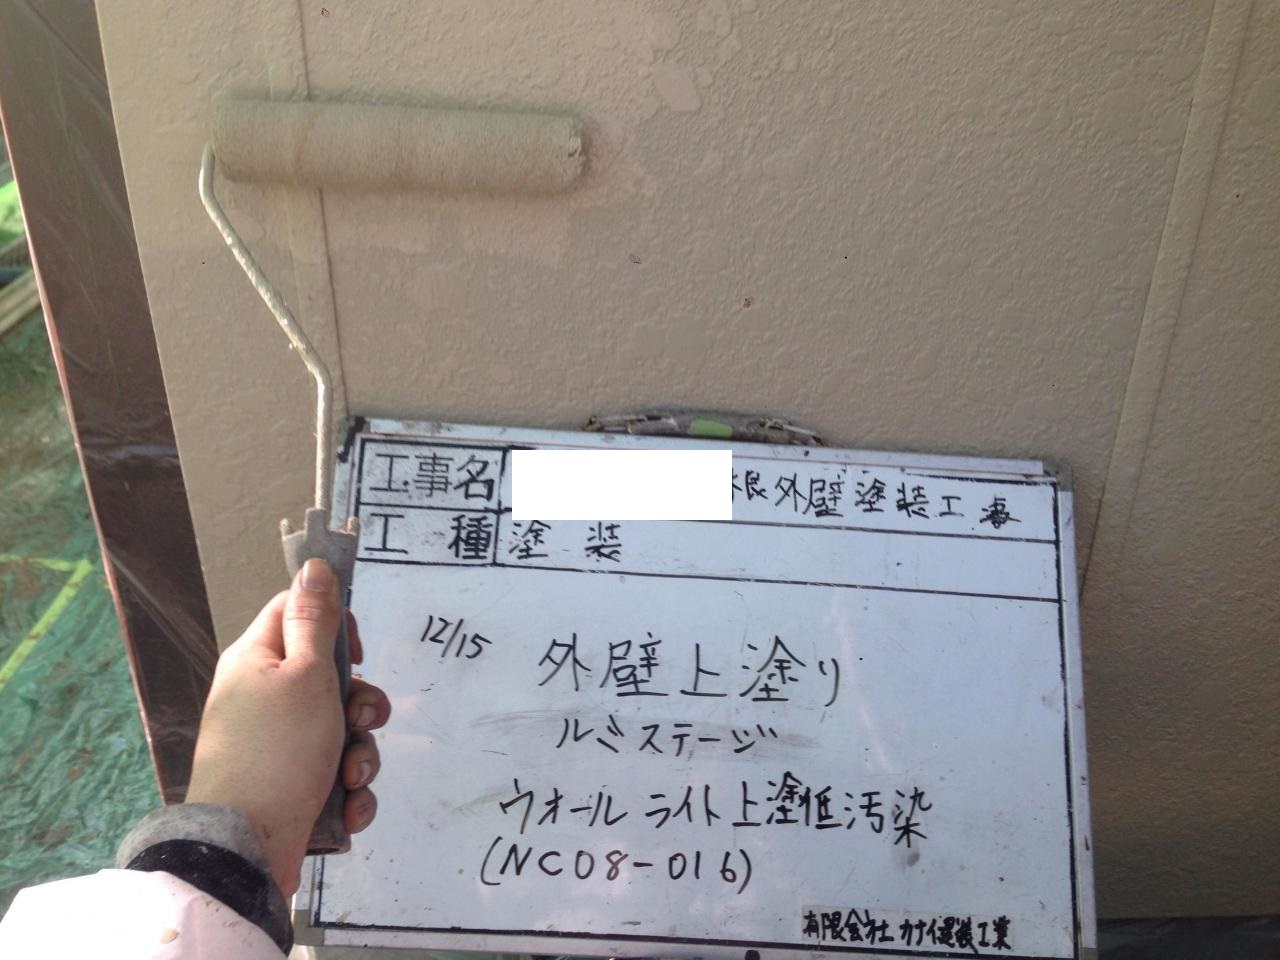 工事名 根外壁塗装工事
工種 塗装
12/15 外壁上塗り
ルミステージ
ウオールライト上塗低汚染
(NC08-016)
有限会社カナイ建装工業